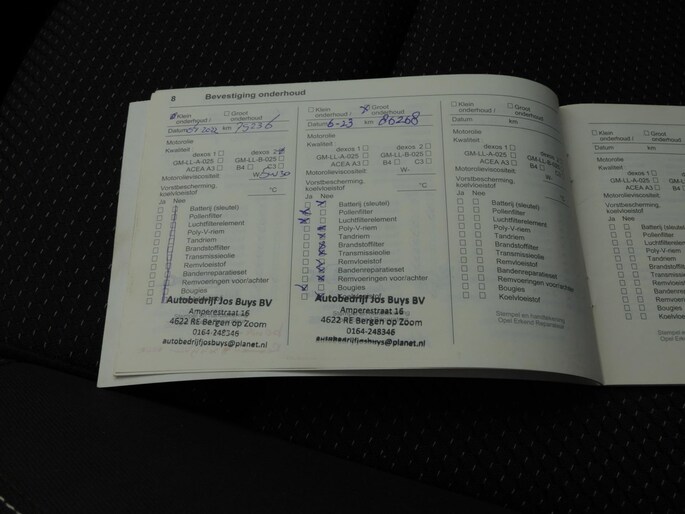 8 Bevestiging onderhoud
Klein onderhoud /
Groot onderhoud
Datum 2022 km 75236
Motorolie
Kwaliteit
dexos 1 dexos 2
GM-LL-A-025 GM-LL-B-025
ACEA A3 B4 C3
Motorolieviscositeit: W- 5W30
Vorstbescherming, koelvloeistof °C
Ja Nee
Batterij (sleutel)
Pollenfilter
Luchtfilterelement
Poly-V-riem
Tandriem
Brandstoffilter
Transmissieolie
Remvloeistof
Bandenreparatieset
Remvoeringen voor/achter
Bougies
Autobedrijf Jos Buys BV
Amperestraat 16
4622 RE Bergen op Zoom
0164-248346
autobedrijfjosbuys@planet.nl
Klein onderhoud /
Groot onderhoud
Datum 6-23 km 86268
Motorolie
Kwaliteit
dexos 1 dexos 2
GM-LL-A-025 GM-LL-B-025
ACEA A3 B4 C3
Motorolieviscositeit: W-
Vorstbescherming, koelvloeistof °C
Ja Nee
Batterij (sleutel)
Pollenfilter
Luchtfilterelement
Poly-V-riem
Tandriem
Brandstoffilter
Transmissieolie
Remvloeistof
Bandenreparatieset
Remvoeringen voor/achter
Bougies
Autobedrijf Jos Buys BV
Amperestraat 16
4622 RE Bergen op Zoom
0164-248346
autobedrijfjosbuys@planet.nl
Klein onderhoud /
Groot onderhoud
Datum km
Motorolie
Kwaliteit
dexos 1 dexos 2
GM-LL-A-025 GM-LL-B-025
ACEA A3 B4 C3
Motorolieviscositeit: W-
Vorstbescherming, koelvloeistof °C
Ja Nee
Batterij (sleutel)
Pollenfilter
Luchtfilterelement
Poly-V-riem
Tandriem
Brandstoffilter
Transmissieolie
Remvloeistof
Bandenreparatieset
Remvoeringen voor/achter
Bougies
Koelvloeistof
Stempel en handtekening
Opel Erkend Reparateur
Klein onderhoud /
Datum
Motorolie
Kwaliteit
dexos 1
GM-LL-A-025
ACEA A3
Motorolieviscositeit:
Vorstbescherming, koelvloeistof
Ja Nee